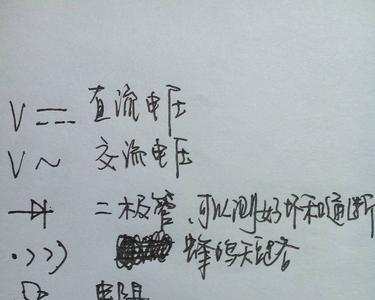 V ⎓ 直流电压
V ~ 交流电压
二极管，可以测好坏和通断
蜂鸣
电阻